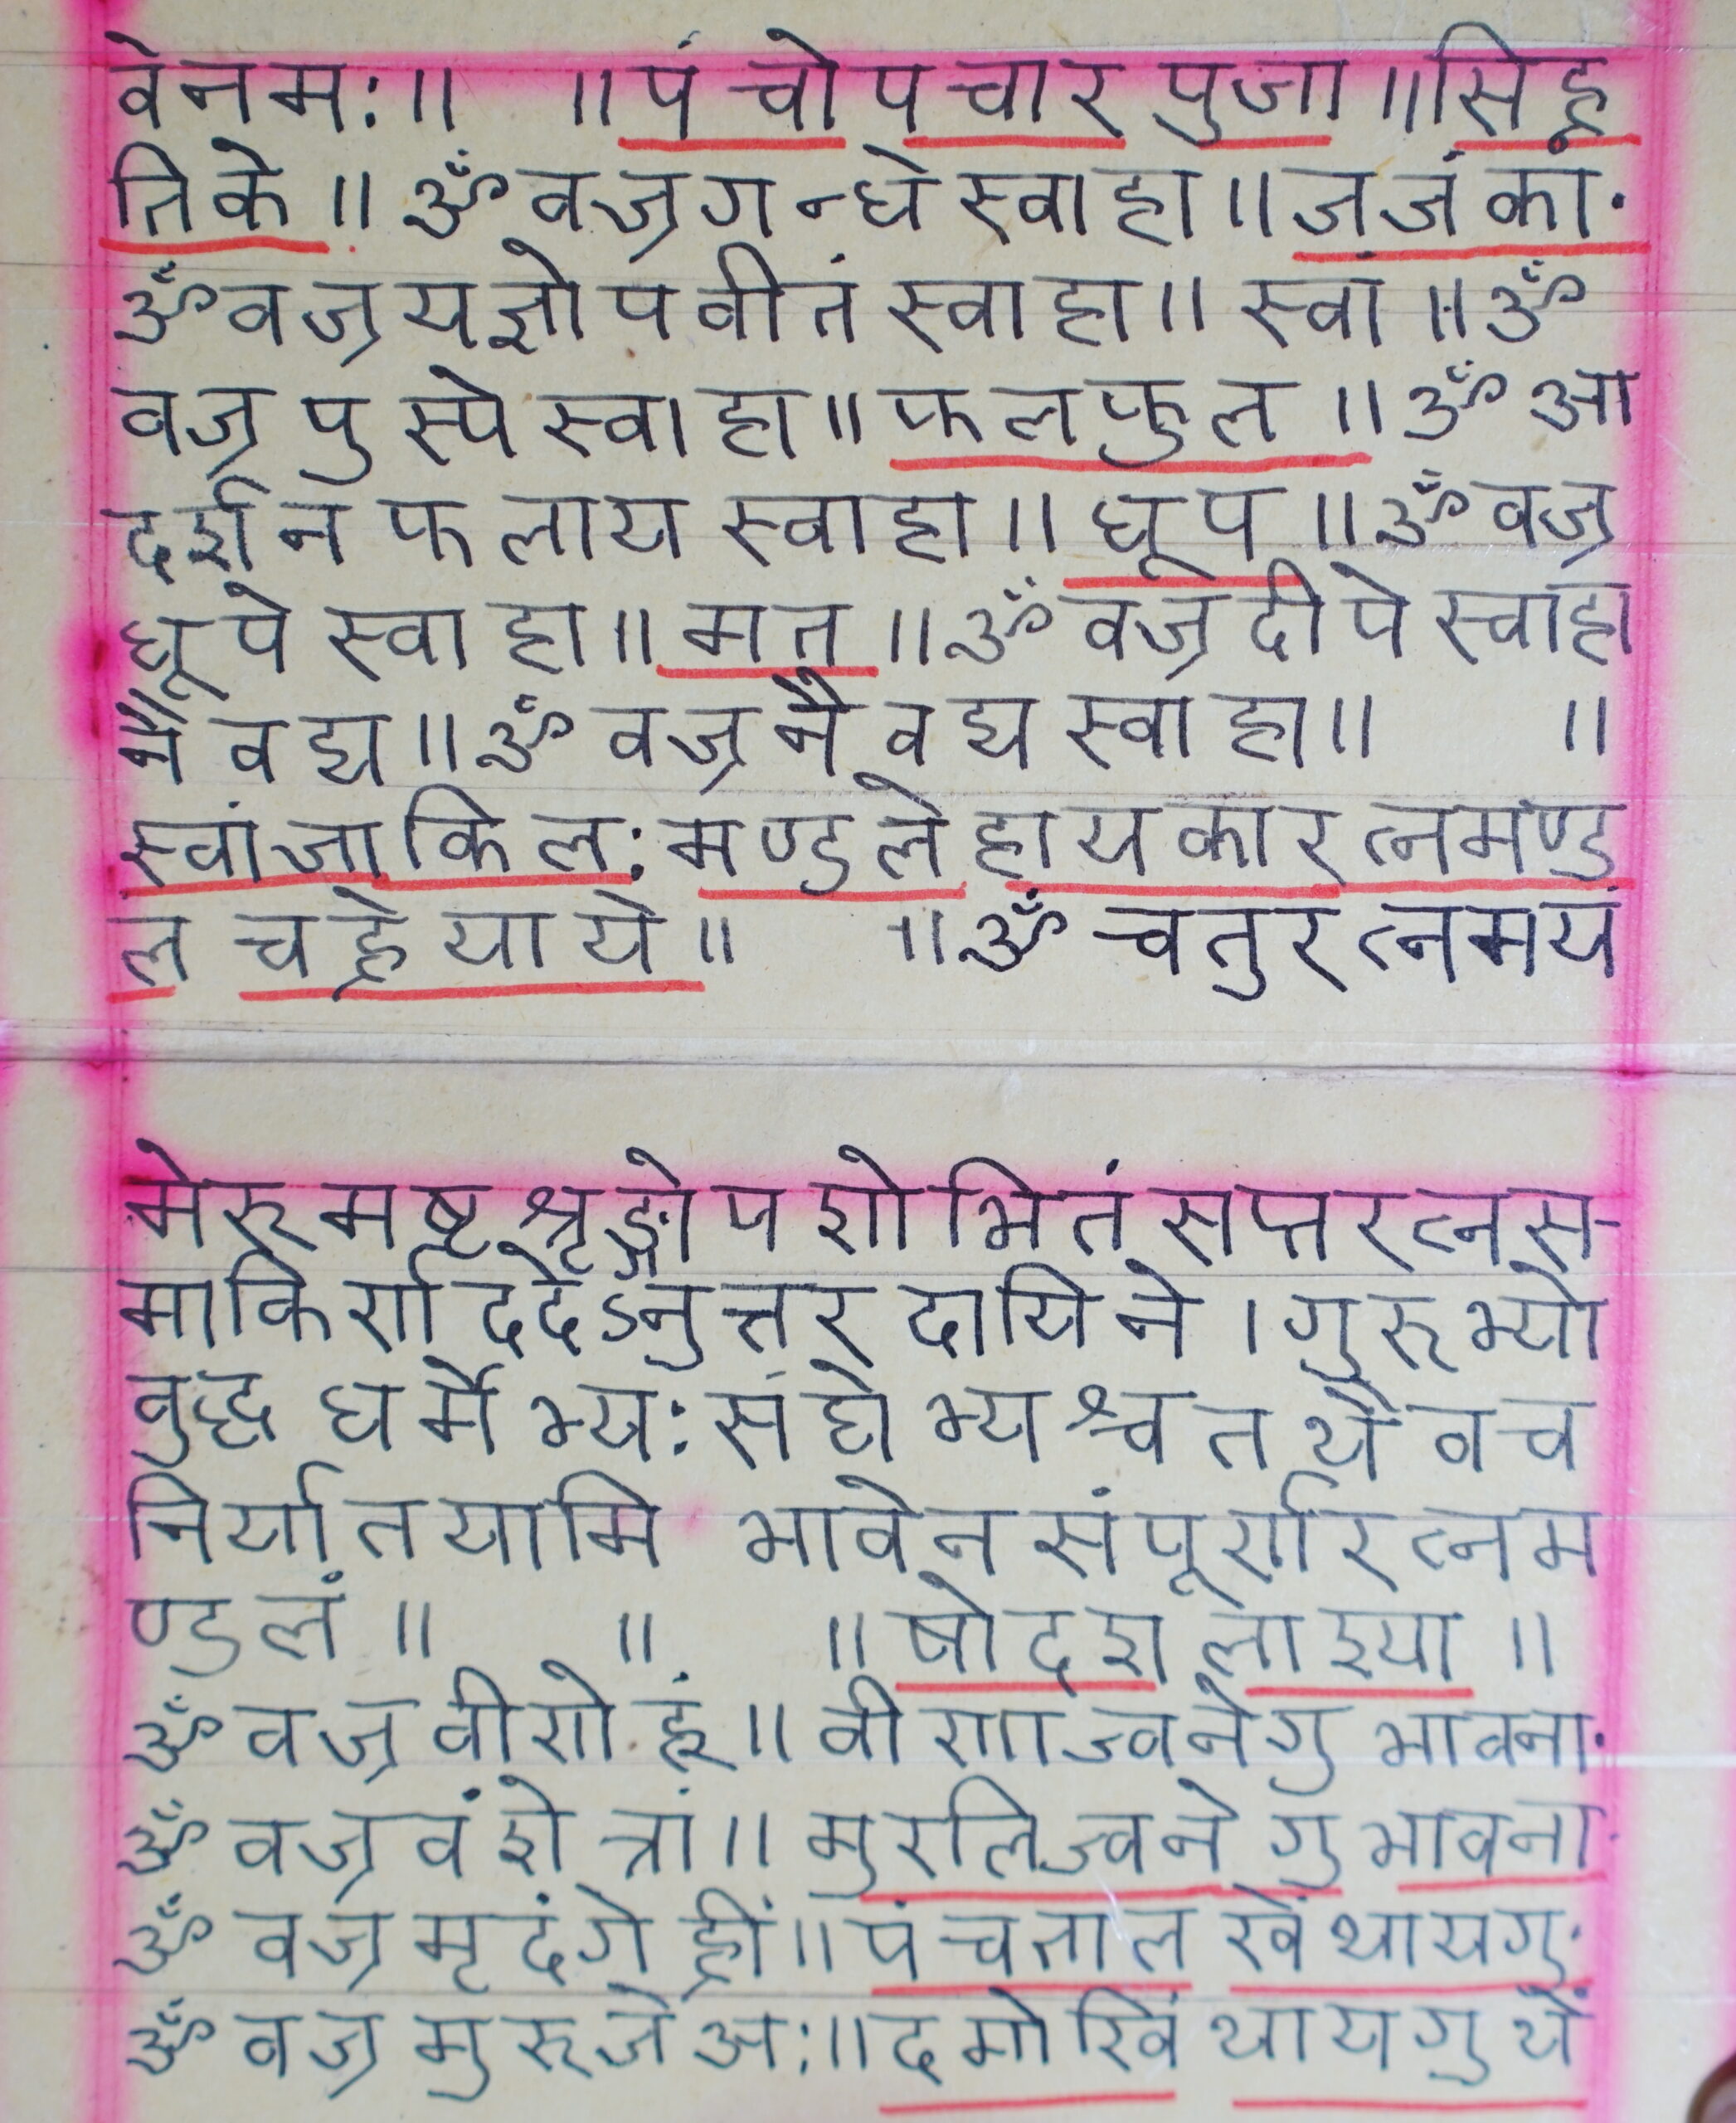 वेनमः॥ ॥पंचोपचार पुजा॥सिंह्ल
तिके॥ ॐ वज्रगन्धे स्वाहा॥जजंकां·
ॐ वज्रयज्ञोपवीतं स्वाहा॥ स्वां॥ॐ
वज्र पुस्पे स्वाहा॥फलफुल॥ॐ आ
दर्शन फलाय स्वाहा॥धूप॥ॐ वज्र
धूपे स्वाहा॥मत॥ॐ वज्रदीपे स्वाहा
नैवद्य॥ॐ वज्रनैवद्य स्वाहा॥ ॥
स्वांजाकिलः मण्डले हायकारत्नमण्ड
ल चह्रेयाये॥ ॥ॐ चतुरत्नमयं
मेरुमष्टश्रृङ्गोपशोभितं सप्तरत्नस-
माकिर्ण ददेऽनुत्तर दायिने।गुरुभ्यो
बुद्ध धर्मेभ्यः संघेभ्यश्च तथैवच
निर्यातयामि भावेन संपूर्णरत्नम
ण्डलं॥ ॥ ॥षोदश लाश्या॥
ॐ वज्र वीणे हूं॥ वीणाज्वनेगु भावना·
ॐ वज्र वंशे त्रां॥ मुरलिज्वनेगु भावना·
ॐ वज्र मृदंगे ह्रीं॥पंचताल खिं थायगु·
ॐ वज्र मुरुजे अः॥दमोखिं थायगु थें